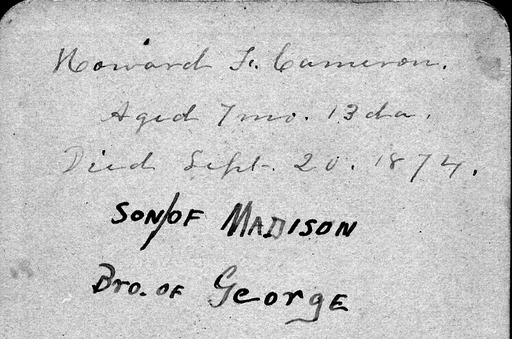 Howard F. Cameron.
Aged 7mo. 13da.
Died Sept. 20. 1874.
SON/OF MADISON
Bro. OF GeorgE